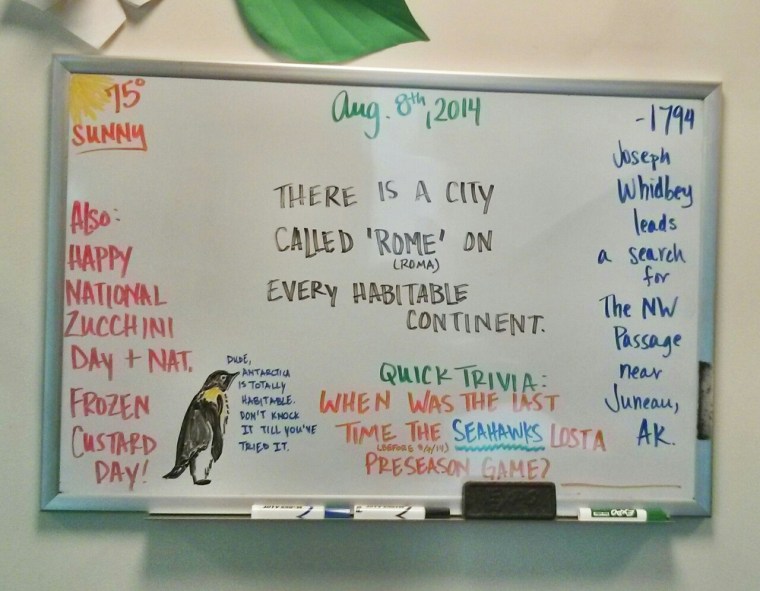 75°
SUNNY
Aug. 8th, 2014
-1794
Joseph
Whidbey
leads
a search
for
The NW
Passage
near
Juneau,
AK.
THERE IS A CITY
CALLED 'ROME' ON
(ROMA)
EVERY HABITABLE
CONTINENT.
Also:
HAPPY
NATIONAL
ZUCCHINI
DAY + NAT.
FROZEN
CUSTARD
DAY!
DUDE,
ANTARCTICA
IS TOTALLY
HABITABLE.
DON'T KNOCK
IT TILL YOU'VE
TRIED IT.
QUICK TRIVIA:
WHEN WAS THE LAST
TIME THE SEAHAWKS LOST A
(BEFORE
PRESEASON GAME?
EXPO